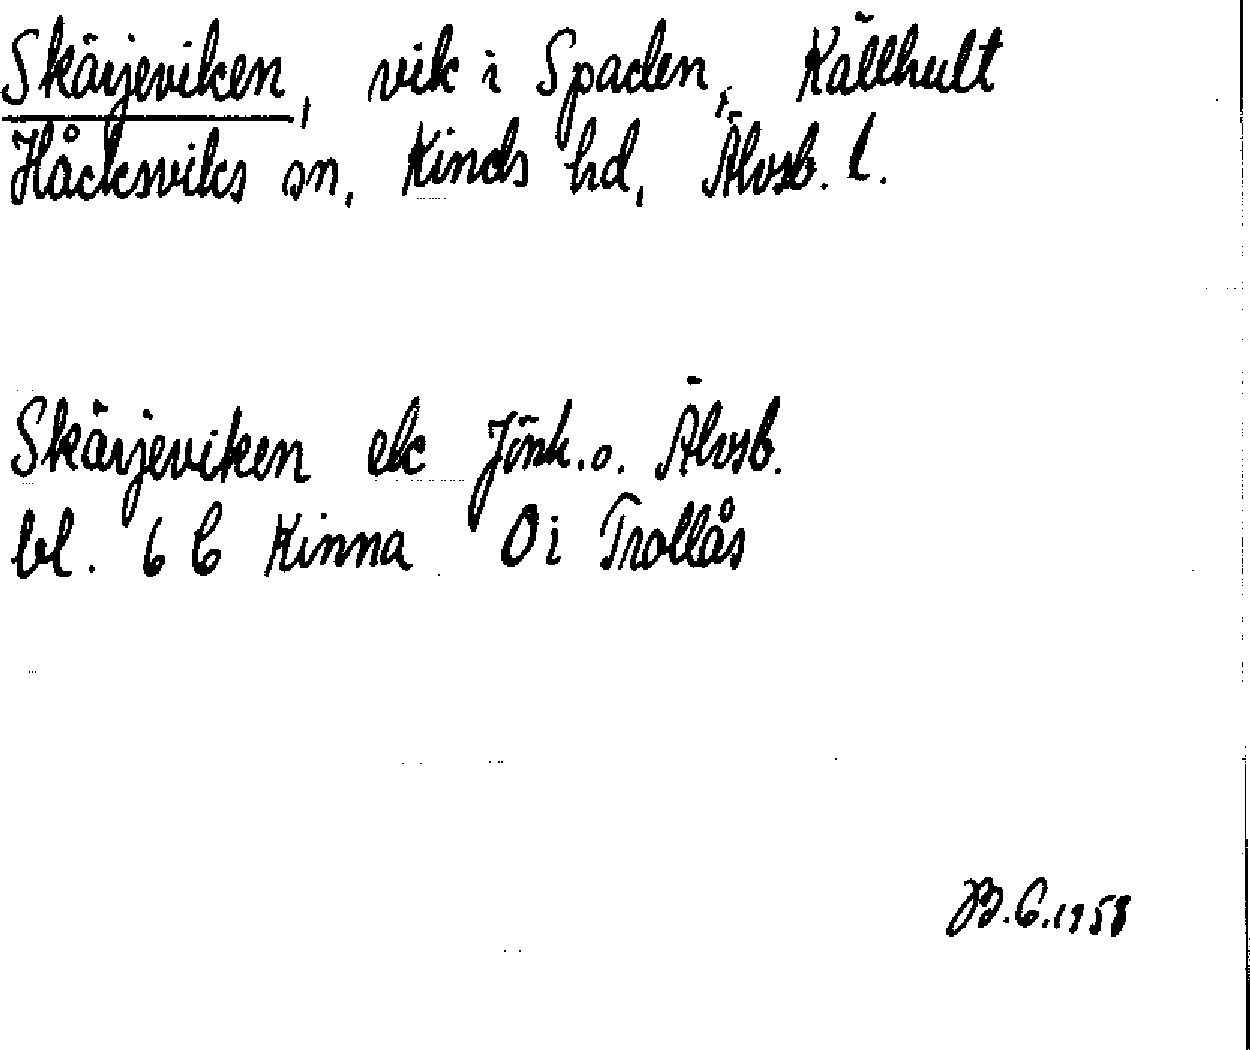 Skärjeviken, vik i Spaden, Källhult
Håcksviks sn, Kinds hd, Älvsb. l.
Skärjeviken ek Jönk. o. Älvsb.
bl. 6 C Kinna Oi Trollås
B.C. 1958